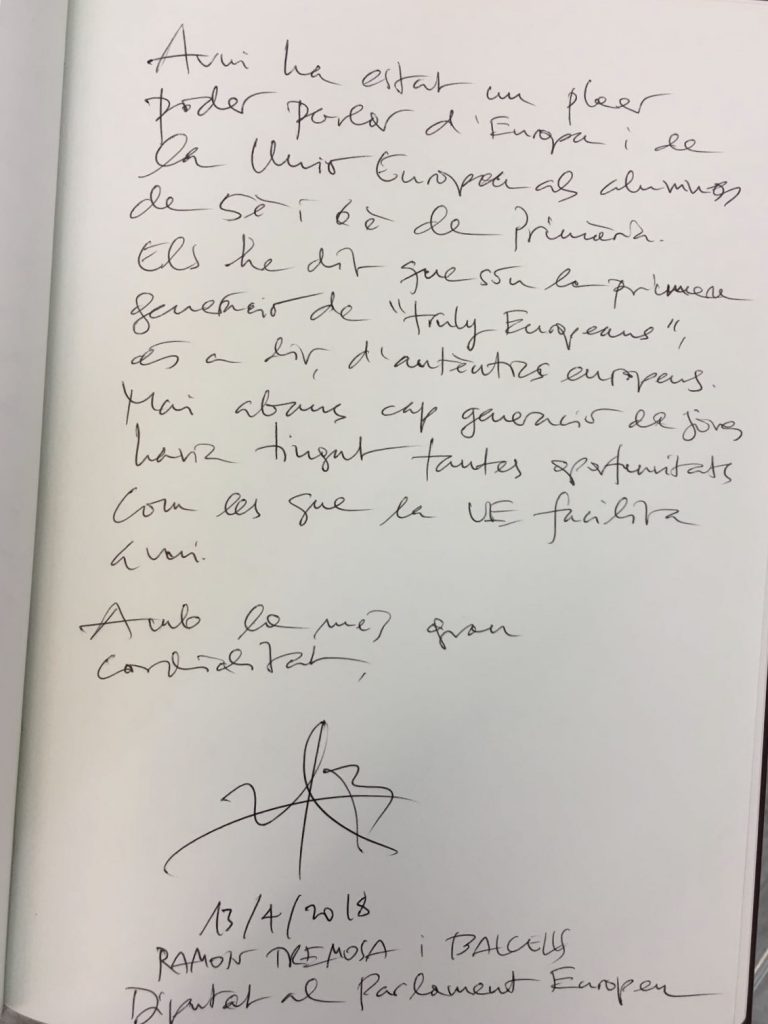 Avui ha estat un plaer
poder parlar d'Europa i de
la Unió Europea als alumnes
de 5è i 6è de Primària.
Els he dit que són la primera
generació de "truly Europeans",
és a dir, d'autèntics europeus.
Mai abans cap generació de joves
havia tingut tantes oportunitats
com les que la UE facilita
avui.
Amb la més gran
cordialitat,
13/4/2018
RAMON TREMOSA i BALCELLS
Diputat al Parlament Europeu